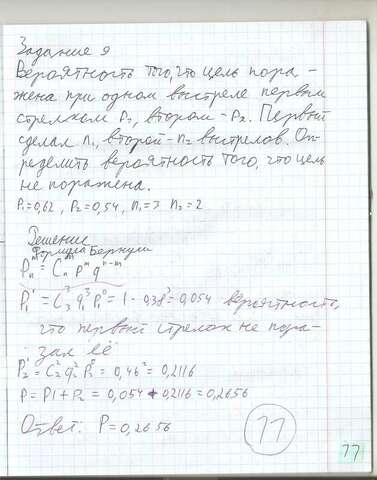 Задание 9
Вероятность того, что цель пора-
жена при одном выстреле первым
стрелком P₁, вторым - P₂. Первый
сделал n₁, второй - n₂ выстрелов. Оп-
ределить вероятность того, что цель
не поражена.
P₁=0,62, P₂=0,54, n₁=3 n₂=2
Решение
Формула Бернули
Pₙᵐ = Cₙᵐ pᵐ qⁿ⁻ᵐ
P₁' = C₃³ q₁³ P₁⁰ = 1 - 0,38³ = 0,054 вероятность,
что первый стрелок не пора-
зил её
P₂' = C₂² q₂² P₂⁰ = 0,46² = 0,2116
P = P1 + P₂ = 0,054 + 0,2116 = 0,2656
Ответ: P=0,2656
77
77